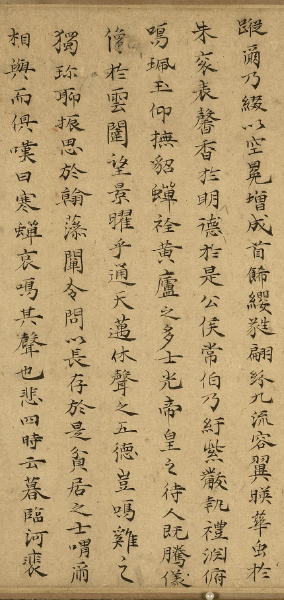 蹤爾乃綴以空冕增成首飾纓蕤翩紛九流容翼暎華虫於
朱袞表馨香於明德於是公侯常伯乃紆紫黻執禮淵俯
鳴珮玉仰撫貂蟬黃廬之多士光帝皇之待人既騰儀
像於雲闥望景曜乎通天邁休聲之五德豈鳴雞之
獨珎聊振思於翰藻闡令問以長存於是貧居之士喟爾
相與而俱嘆曰寒蟬哀鳴其聲也悲四時云暮臨河裴